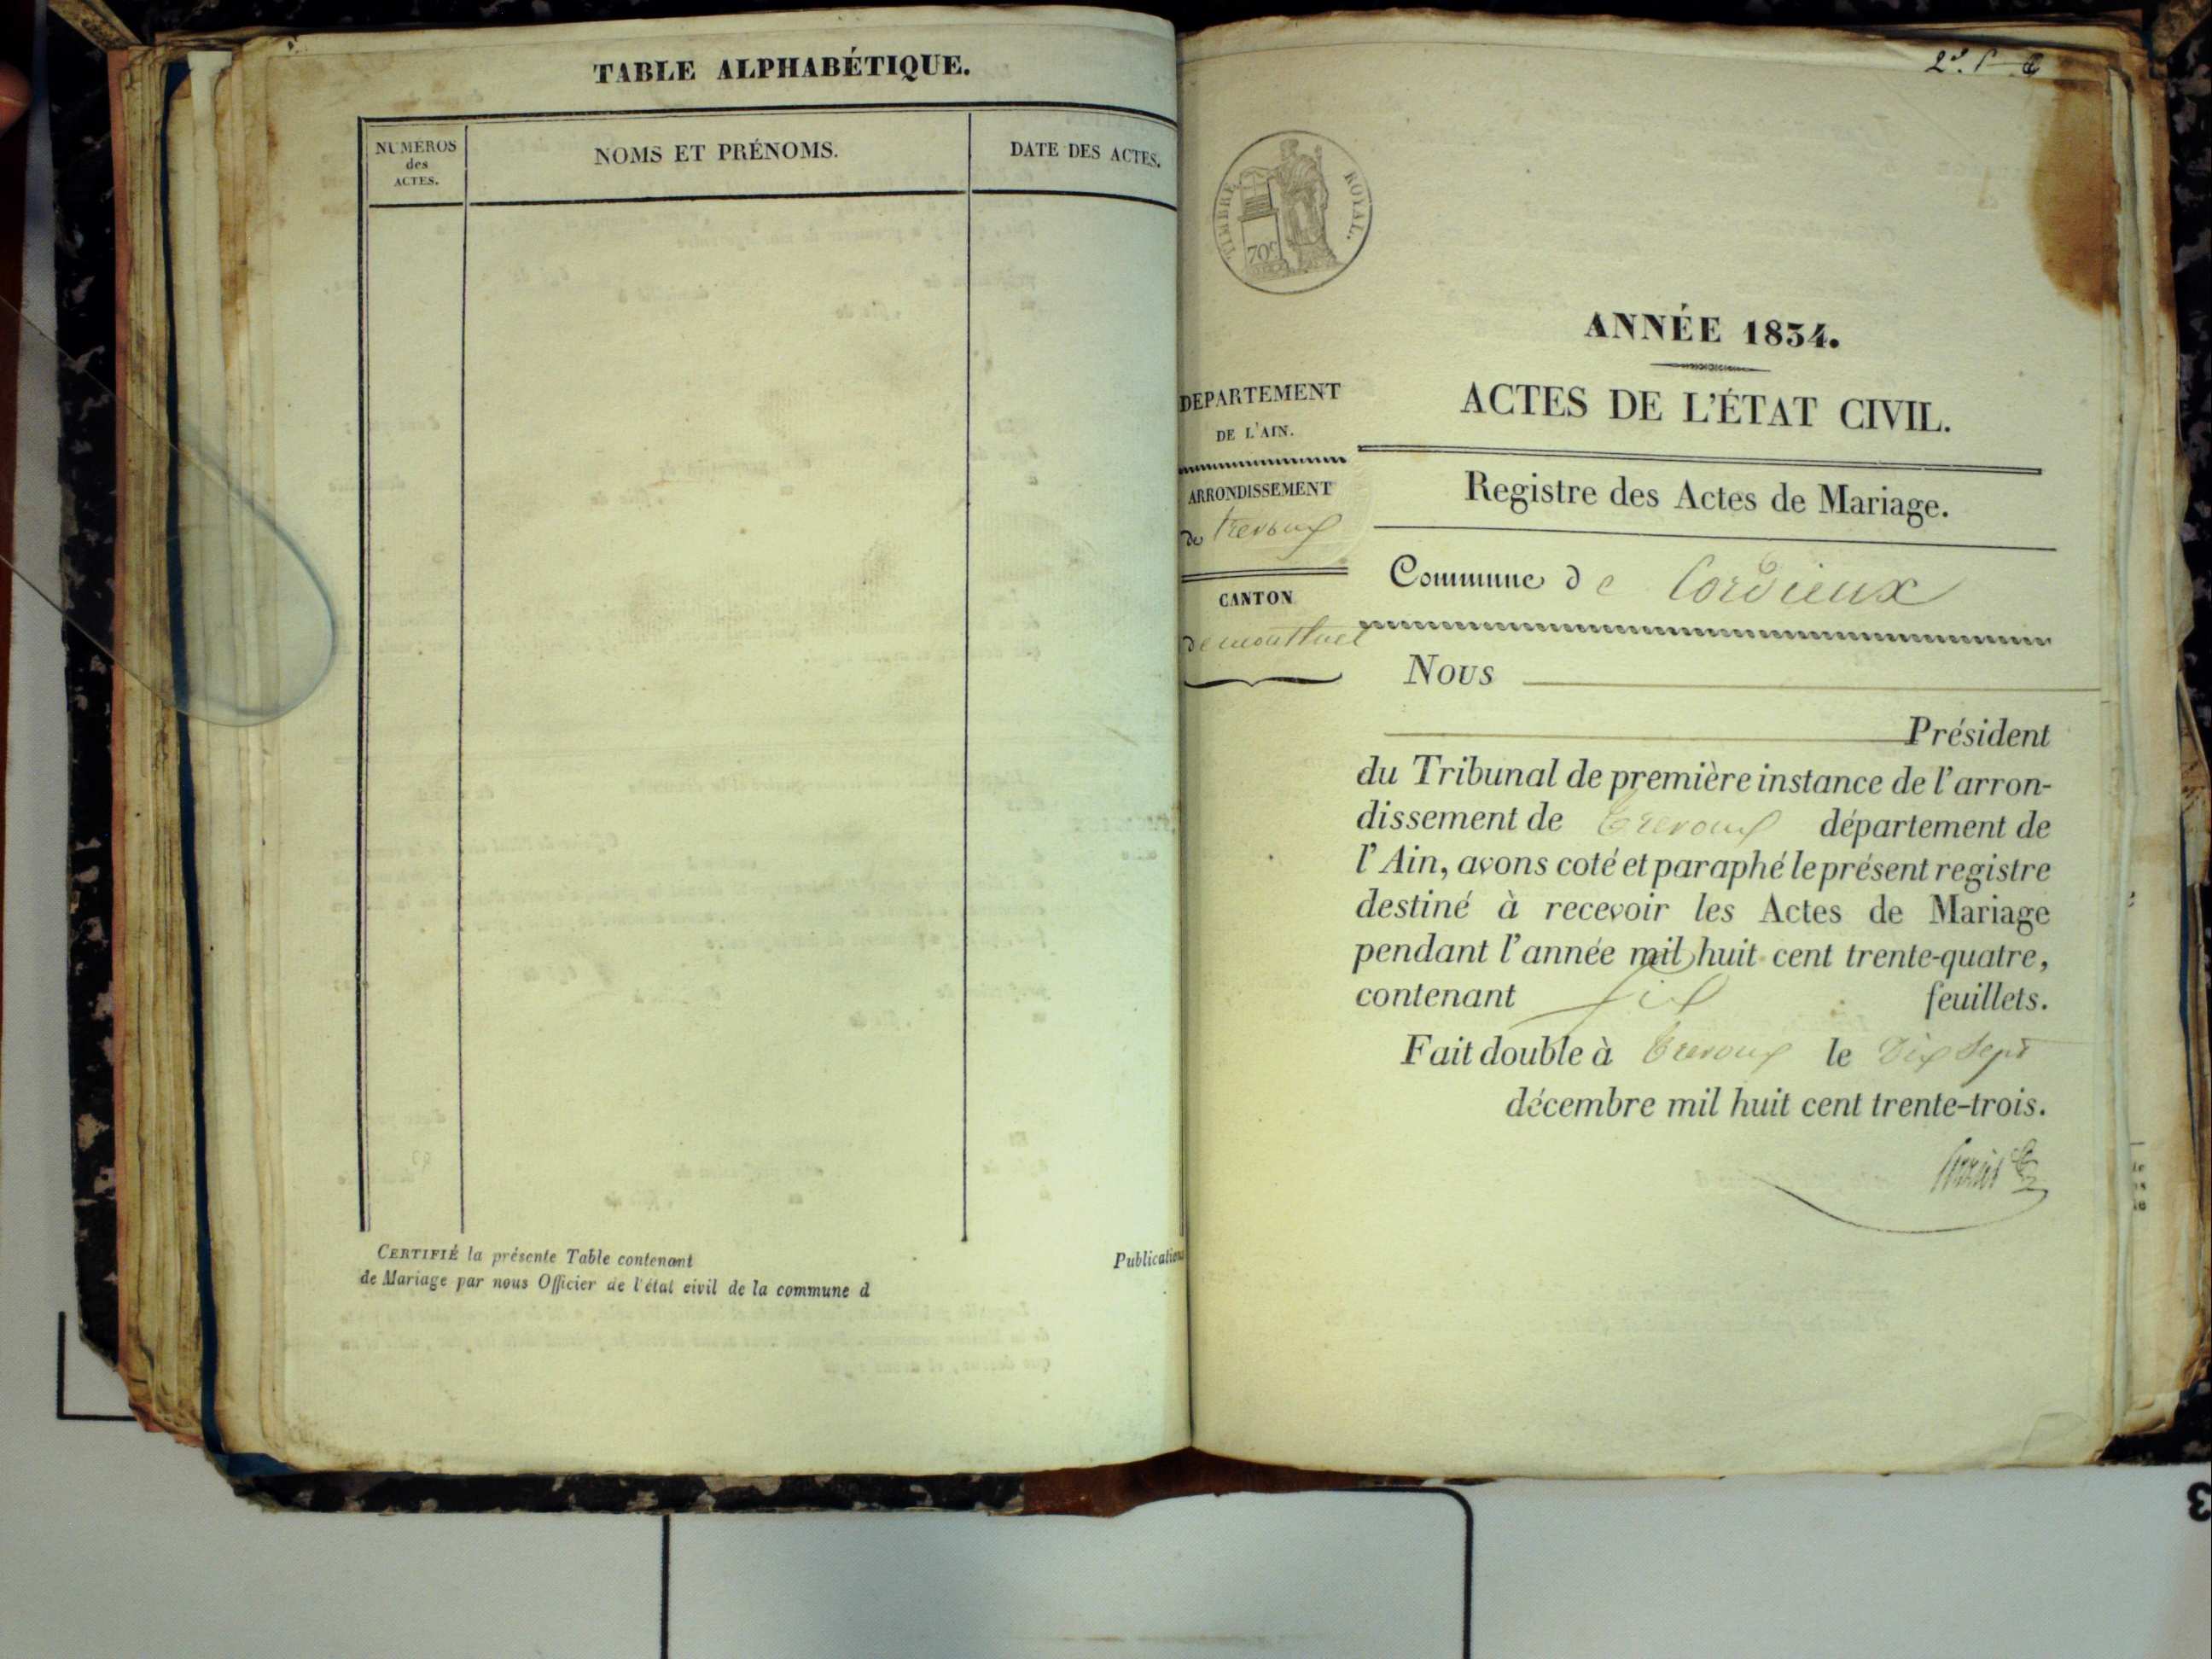 TABLE ALPHABÉTIQUE.
NUMÉROS
des
ACTES.
NOMS ET PRÉNOMS.
DATE DES ACTES.
CERTIFIÉ la présente Table contenant
Publications
de Mariage par nous Officier de l'état civil de la commune d
TIMBRE ROYAL.
70c
ANNÉE 1834.
ACTES DE L'ÉTAT CIVIL.
Registre des Actes de Mariage.
DEPARTEMENT
DE L'AIN.
ARRONDISSEMENT
de trevoux
CANTON
de montluel
Commune de Cordieux
Nous
Président
du Tribunal de première instance de l'arron-
dissement de Trevoux département de
l'Ain, avons coté et paraphé le présent registre
destiné à recevoir les Actes de Mariage
pendant l'année mil huit cent trente-quatre,
contenant six feuillets.
Fait double à Trevoux le Dix sept
décembre mil huit cent trente-trois.